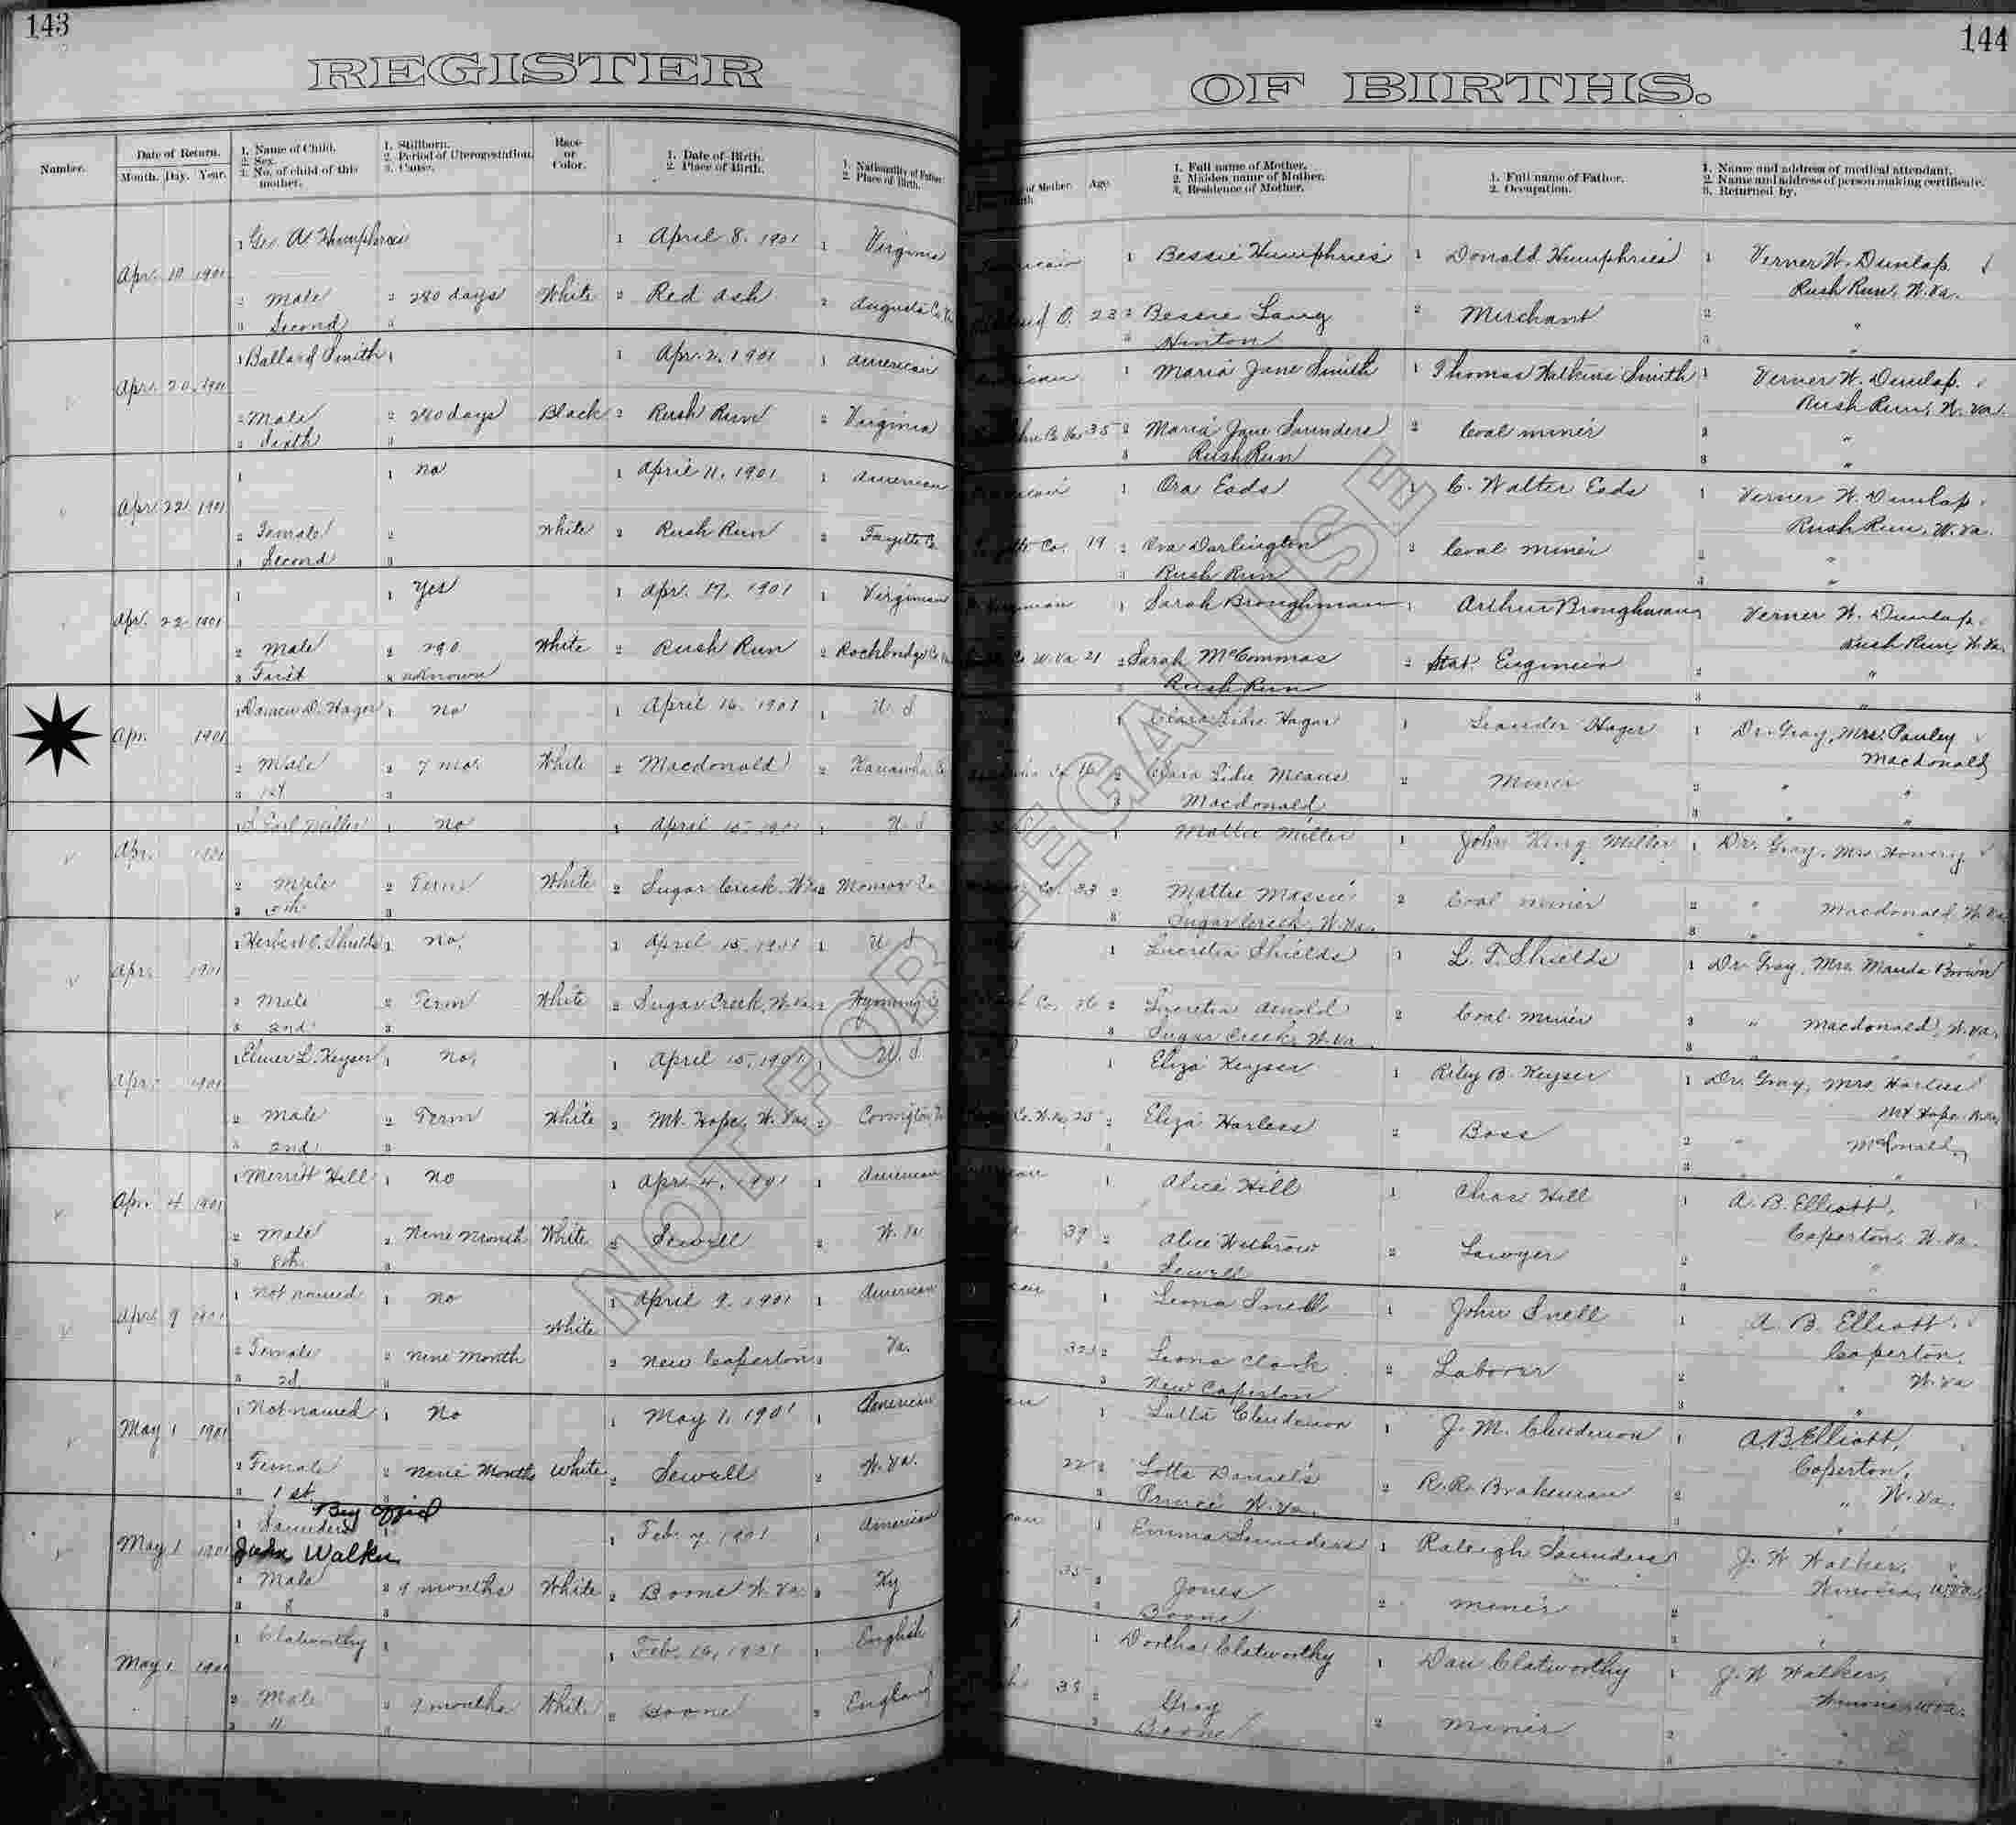 143
REGISTER
Number.
Date of Return.
Month. Day. Year.
1. Name of Child.
2. Sex.
3. No. of child of this mother.
1. Stillborn.
2. Period of Uterogestation.
3. Cause.
Race or Color.
1. Date of Birth.
2. Place of Birth.
1. Nationality of Father.
2. Place of Birth.
1 Geo. A. Humphries 1 April 8. 1901 1 Virginia
Apr. 10 1901
2 Male 2 280 days White 2 Red Ash 2 Augusta Co. Va
3 Second 3
1 Ballard Smith 1 1 Apr. 2, 1901 1 American
Apr. 20 1901
2 Male 2 280 days Black 2 Rush Run 2 Virginia
3 Sixth 3
1 1 no 1 April 11, 1901 1 American
Apr 22 1901
2 Female 2 White 2 Rush Run 2 Fayette Co
3 Second 3
1 1 Yes 1 Apr. 17, 1901 1 Virginian
Apr. 22 1901
2 Male 2 290 White 2 Rush Run 2 Rockbridge Co
3 First 3 unknown
1 D. Hager 1 No 1 April 16. 1901 1 U. S
Apr. 1901
2 Male 2 7 mos. White 2 Macdonald 2 Kanawha Co
3 1st 3
1 Earl Miller 1 No 1 April 15, 1901 1 U. S
Apr. 1901
2 Male 2 Term White 2 Sugar Creek, W.Va 2 Monroe Co
3 5th 3
1 Herbert C. Shields 1 No, 1 April 15, 1901 1 U S
Apr. 1901
2 Male 2 Term White 2 Sugar Creek, W.Va. 2 Wyoming
3 2nd 3
1 Elmer L. Keyser 1 No, 1 April 15, 1901 1 U. S
Apr. 1901
2 Male 2 Term White 2 Mt. Hope, W. Va. 2 Covington
3 2nd 3
1 Merritt Hill 1 No 1 Apr. 4, 1901 1 American
Apr. 4 1901
2 Male 2 Nine Month White 2 Sewell 2 W. Va
3 8th 3
1 Not named 1 No 1 April 9, 1901 1 American
Apr. 9 1901
White
2 Female 2 Nine Month 2 New Caperton 2 Va.
3 2d. 3
1 Not named 1 No 1 May 1, 1901 1 American
May 1 1901
2 Female 2 Nine Months White 2 Sewell 2 W. Va.
3 1st. 3
1 Saunders 1 1 Feb. 7, 1901 1 American
May 1 1901
Walker
2 Male 2 9 months White 2 Boone W. Va 2 Ky
3 8 3
1 Clatworthy 1 1 Feb. 16, 1901 1 English
May 1 1901
2 Male 2 9 months White 2 Boone 2 England
3 11 3
144
OF BIRTHS.
of Mother.
Age
1. Full name of Mother.
2. Maiden name of Mother.
3. Residence of Mother.
1. Full name of Father.
2. Occupation.
1. Name and address of medical attendant.
2. Name and address of person making certificate.
3. Returned by.
1 Bessie Humphries 1 Donald Humphries 1 Verner W. Dunlap
Rush Run, W. Va.
O. 23 2 Bessie Lang 2 Merchant 2 "
3 Hinton 3 "
1 Maria Jane Smith 1 Thomas Watkins Smith 1 Verner W. Dunlap.
Rush Run, W. Va.
Co Va 35 2 Maria Jane Saunders 2 Coal miner 2 "
3 Rush Run 3 "
1 Ora Eads 1 C. Walter Eads 1 Verner W. Dunlap
Rush Run, W. Va.
Co. 19 2 Ora Darlington 2 Coal miner 2 "
3 Rush Run 3 "
1 Sarah Broughman 1 Arthur Broughman Verner W. Dunlap
Rush Run, W. Va.
Co W. Va 21 2 Sarah McCommas 2 Stat. Engineer 2 "
3 Rush Run 3 "
1 Clara Hager 1 Leander Hager 1 Dr. Gray, Mrs. Pauley
Macdonald
16 2 Clara Means 2 Miner 2 " "
3 Macdonald 3 " "
1 Mattie Miller 1 John King Miller 1 Dr. Gray, Mrs.
Co. 33 2 Mattie Massie 2 Coal miner 2 " Macdonald, W. Va
3 Sugar Creek, W. Va. 3 " "
1 Lucretia Shields 1 L. T. Shields 1 Dr. Gray, Mrs. Mauda Brown
Co. 26 2 Lucretia Arnold 2 Coal miner 2 " Macdonald, W. Va.
3 Sugar Creek, W. Va. 3 " "
1 Eliza Keyser 1 Riley B. Keyser 1 Dr. Gray, Mrs. Harless
Mt Hope W. Va.
Co. W. Va, 25 2 Eliza Harless 2 Boss 2 " McDonald,
3 3 " "
1 Alice Hill 1 Chas Hill 1 A. B. Elliott,
Caperton, W. Va.
39 2 Alice Withrow 2 Lawyer 2 "
3 Sewell 3 "
1 Leona Snell 1 John Snell 1 A. B. Elliott,
Caperton,
32 2 Leona Clark 2 Laborer 2 " W. Va
3 New Caperton 3 "
1 Lotta Clenderson 1 J. M. Clenderson 1 A B Elliott,
Caperton,
22 2 Lotta Daniels 2 R. R. Brakeman 2 " W. Va.
3 Prince W. Va. 3 "
1 Emma Saunders 1 Raleigh Saunders J. W Walker,
Winona, W. Va.
35 2 Jones 2 miner 2 "
3 Boone 3 "
1 Dortha Clatworthy 1 Dan Clatworthy 1 J. W Walker,
Winona, W. Va.
35 2 Gray 2 miner 2 "
3 Boone 3 "
NOT FOR LEGAL USE